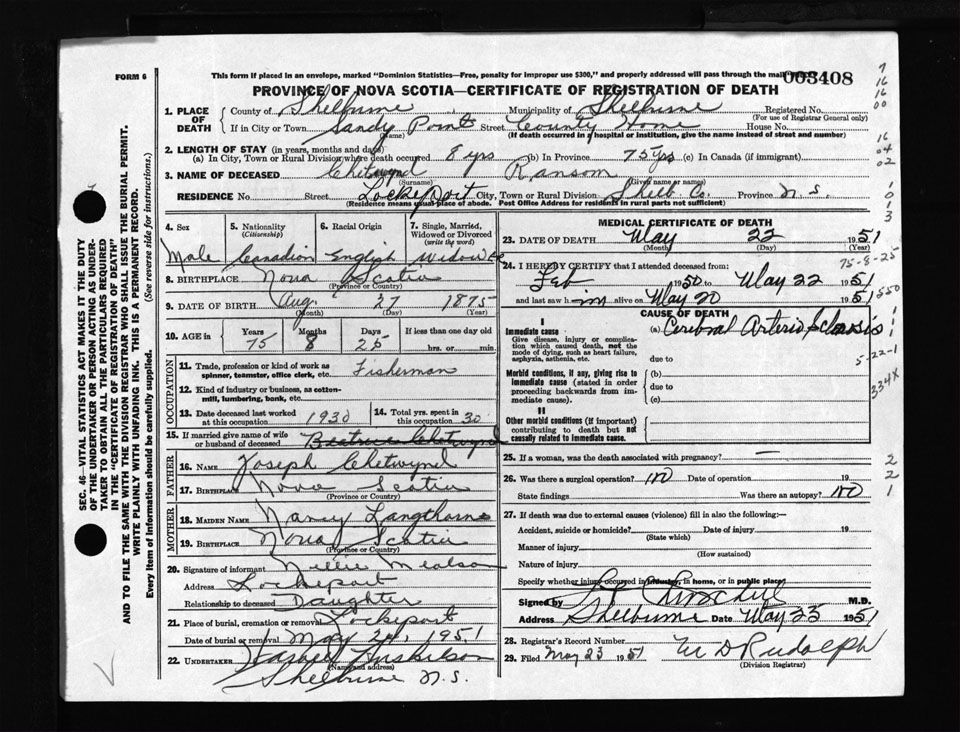 FORM 6
This form if placed in an envelope, marked "Dominion Statistics—Free, penalty for improper use $300," and properly addressed will pass through the mail
003408
PROVINCE OF NOVA SCOTIA—CERTIFICATE OF REGISTRATION OF DEATH
1. PLACE OF DEATH County of Shelburne Municipality of Shelburne Registered No.
(For use of Registrar General only)
If in City or Town Sandy Point Street County Home House No.
(Name) (If death occurred in a hospital or institution, give the name instead of street and number)
2. LENGTH OF STAY (in years, months and days)
(a) In City, Town or Rural Division where death occurred 8 yrs (b) In Province 75 yrs (c) In Canada (if immigrant)
3. NAME OF DECEASED Chetwynd Ransom
(Surname) (Given name or names)
RESIDENCE No. Street Lockeport City, Town or Rural Division Shelb Co. Province N.S.
(Residence means usual place of abode. Post Office Address for residents in rural parts not sufficient)
4. Sex 5. Nationality (Citizenship) 6. Racial Origin 7. Single, Married, Widowed or Divorced (write the word)
Male Canadian English Widowed
8. BIRTHPLACE Nova Scotia
(Province or Country)
9. DATE OF BIRTH Aug. 27 1875
(Month) (Day) (Year)
10. AGE in Years Months Days If less than one day old
75 8 25 hrs. or min.
OCCUPATION
11. Trade, profession or kind of work as spinner, teamster, office clerk, etc. Fisherman
12. Kind of industry or business, as cotton-mill, lumbering, bank, etc.
13. Date deceased last worked at this occupation 1930 14. Total yrs. spent in this occupation 30
15. If married give name of wife or husband of deceased Beatrice Chetwynd
FATHER
16. NAME Joseph Chetwynd
17. BIRTHPLACE Nova Scotia
(Province or Country)
MOTHER
18. MAIDEN NAME Nancy Langthorne
19. BIRTHPLACE Nova Scotia
(Province or Country)
20. Signature of informant Nellie
Address Lockeport
Relationship to deceased Daughter
21. Place of burial, cremation or removal Lockeport
Date of burial or removal May 24, 1951
22. UNDERTAKER
(Name and address)
Shelburne N.S.
MEDICAL CERTIFICATE OF DEATH
23. DATE OF DEATH May 22 1951
(Month) (Day) (Year)
24. I HEREBY CERTIFY that I attended deceased from:
75-8-25
Feb 1950 to May 22 1951
and last saw him alive on May 20 1951
550
CAUSE OF DEATH
I
Immediate cause (a) Cerebral Arterio Sclerosis
Give disease, injury or complication which caused death, not the mode of dying, such as heart failure, asphyxia, asthenia, etc.
due to
5-22-1
Morbid conditions, if any, giving rise to immediate cause (stated in order proceeding backwards from immediate cause).
(b)
due to
(c)
334X
II
Other morbid conditions (if important) contributing to death but not causally related to immediate cause.
25. If a woman, was the death associated with pregnancy? —
26. Was there a surgical operation? No Date of operation 19
State findings Was there an autopsy? No
27. If death was due to external causes (violence) fill in also the following:—
Accident, suicide or homicide? Date of injury 19
(State which)
Manner of injury
(How sustained)
Nature of injury
Specify whether injury occurred in industry, in home, or in public place
Signed by M.D.
Address Shelburne Date May 23 1951
28. Registrar's Record Number
29. Filed May 23 1951 M D Rudolph
(Division Registrar)
7
16
16
00
16
04
02
1
0
1
3
2
2
1
SEC. 46—VITAL STATISTICS ACT MAKES IT THE DUTY
OF THE UNDERTAKER OR PERSON ACTING AS UNDER-
TAKER TO OBTAIN ALL THE PARTICULARS REQUIRED
IN THE "CERTIFICATE OF REGISTRATION OF DEATH"
AND TO FILE THE SAME WITH THE DIVISION REGISTRAR WHO SHALL ISSUE THE BURIAL PERMIT.
WRITE PLAINLY WITH UNFADING INK. THIS IS A PERMANENT RECORD.
Every item of information should be carefully supplied. (See reverse side for instructions.)